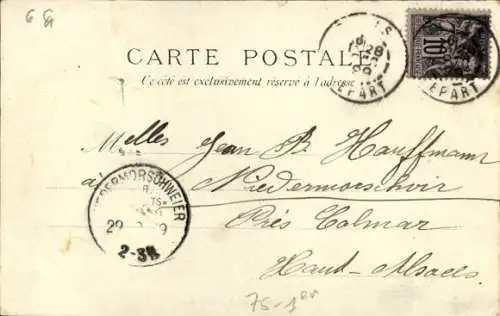 CARTE POSTALE
Ce côté est exclusivement réservé à l'adresse
DEPART
10
EPART
Melles Jean B. Hauffmann
à Niedermorschwir
Près Colmar
Haut-Alsace
NIEDERMORSCHWEIER
29 9
2-3N
75-1er